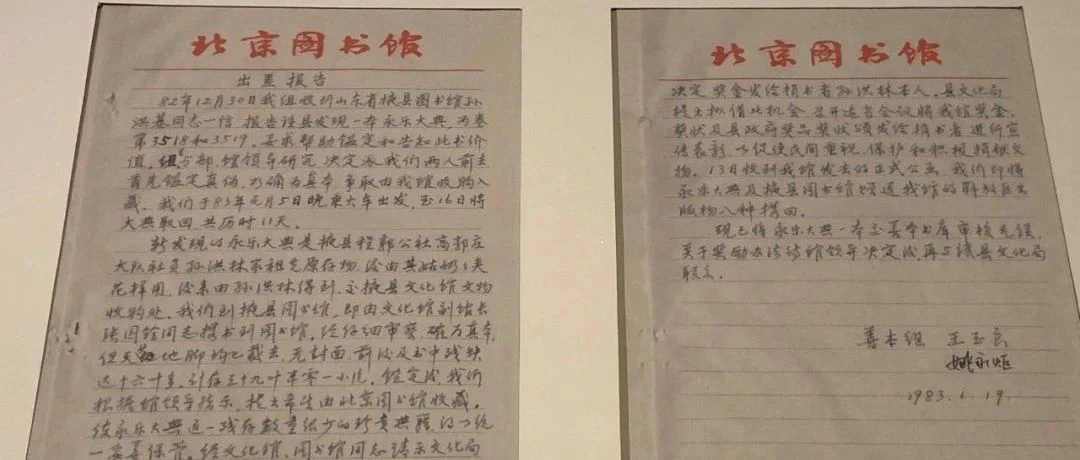 北京图书馆
出差报告
82年12月30日我组收到山东省掖县图书馆孙
洪基同志一信,报告该县发现一本永乐大典,为卷
第3518和3519。要求帮助鉴定和告知此书价
值。组与部、馆领导研究,决定派我们两人前去
首先鉴定真伪,如确为真本,争取由我馆收购入
藏。我们于83年元月5日晚乘火车出发,至16日将
大典取回,共历时11天。
新发现的永乐大典是掖县程郭公社高郭庄
大队社员孙洪林家祖先原存物,后由其姑奶夹
花样用,后来由孙洪林得到,交掖县文化馆文物
收购处。我们到掖县图书馆,即由文化馆副馆长
张国馆同志携书到图书馆。经仔细审察,确为真本,
但天地脚均已裁去,无封面,前后及书中残缺
达十六叶多,引存三十九叶半零一小片。鉴定后,我们
根据馆领导指示,提出希望由北京图书馆收藏。
使永乐大典这一残存数量很少的珍贵典籍,得以统
一妥善保管。经文化馆、图书馆同志请示文化局
北京图书馆
决定奖金发给捐书者孙洪林本人。县文化局
提出拟借此机会,召开适当会议将我馆奖金、
奖状及县政府奖品奖状颁发给捐书者,进行宣
传表彰,以促使民间重视、保护和积极捐献文
物。13日收到我馆发去的正式公函,我们即将
永乐大典及掖县图书馆赠送我馆的解放区出
版物八种携回。
现已将永乐大典一本交善本书库审核无误,
关于奖励办法待馆领导决定后,再与该县文化局
联系。
善本组 王玉良
姚永炬
1983.1.19.